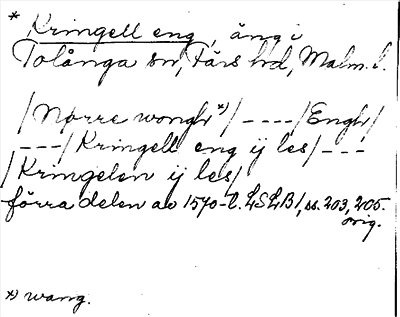 * Kringell eng, äng i
Tolånga sn, Färs hd, Malm. l.
/Nørre wongh *)/ - - - - /Engh/
- - - /Kringell eng ij les/ - - -
/Kringelen ij les/
förra delen av 1570-t. LSLB1, ss. 203, 205.
orig.
*) wang.